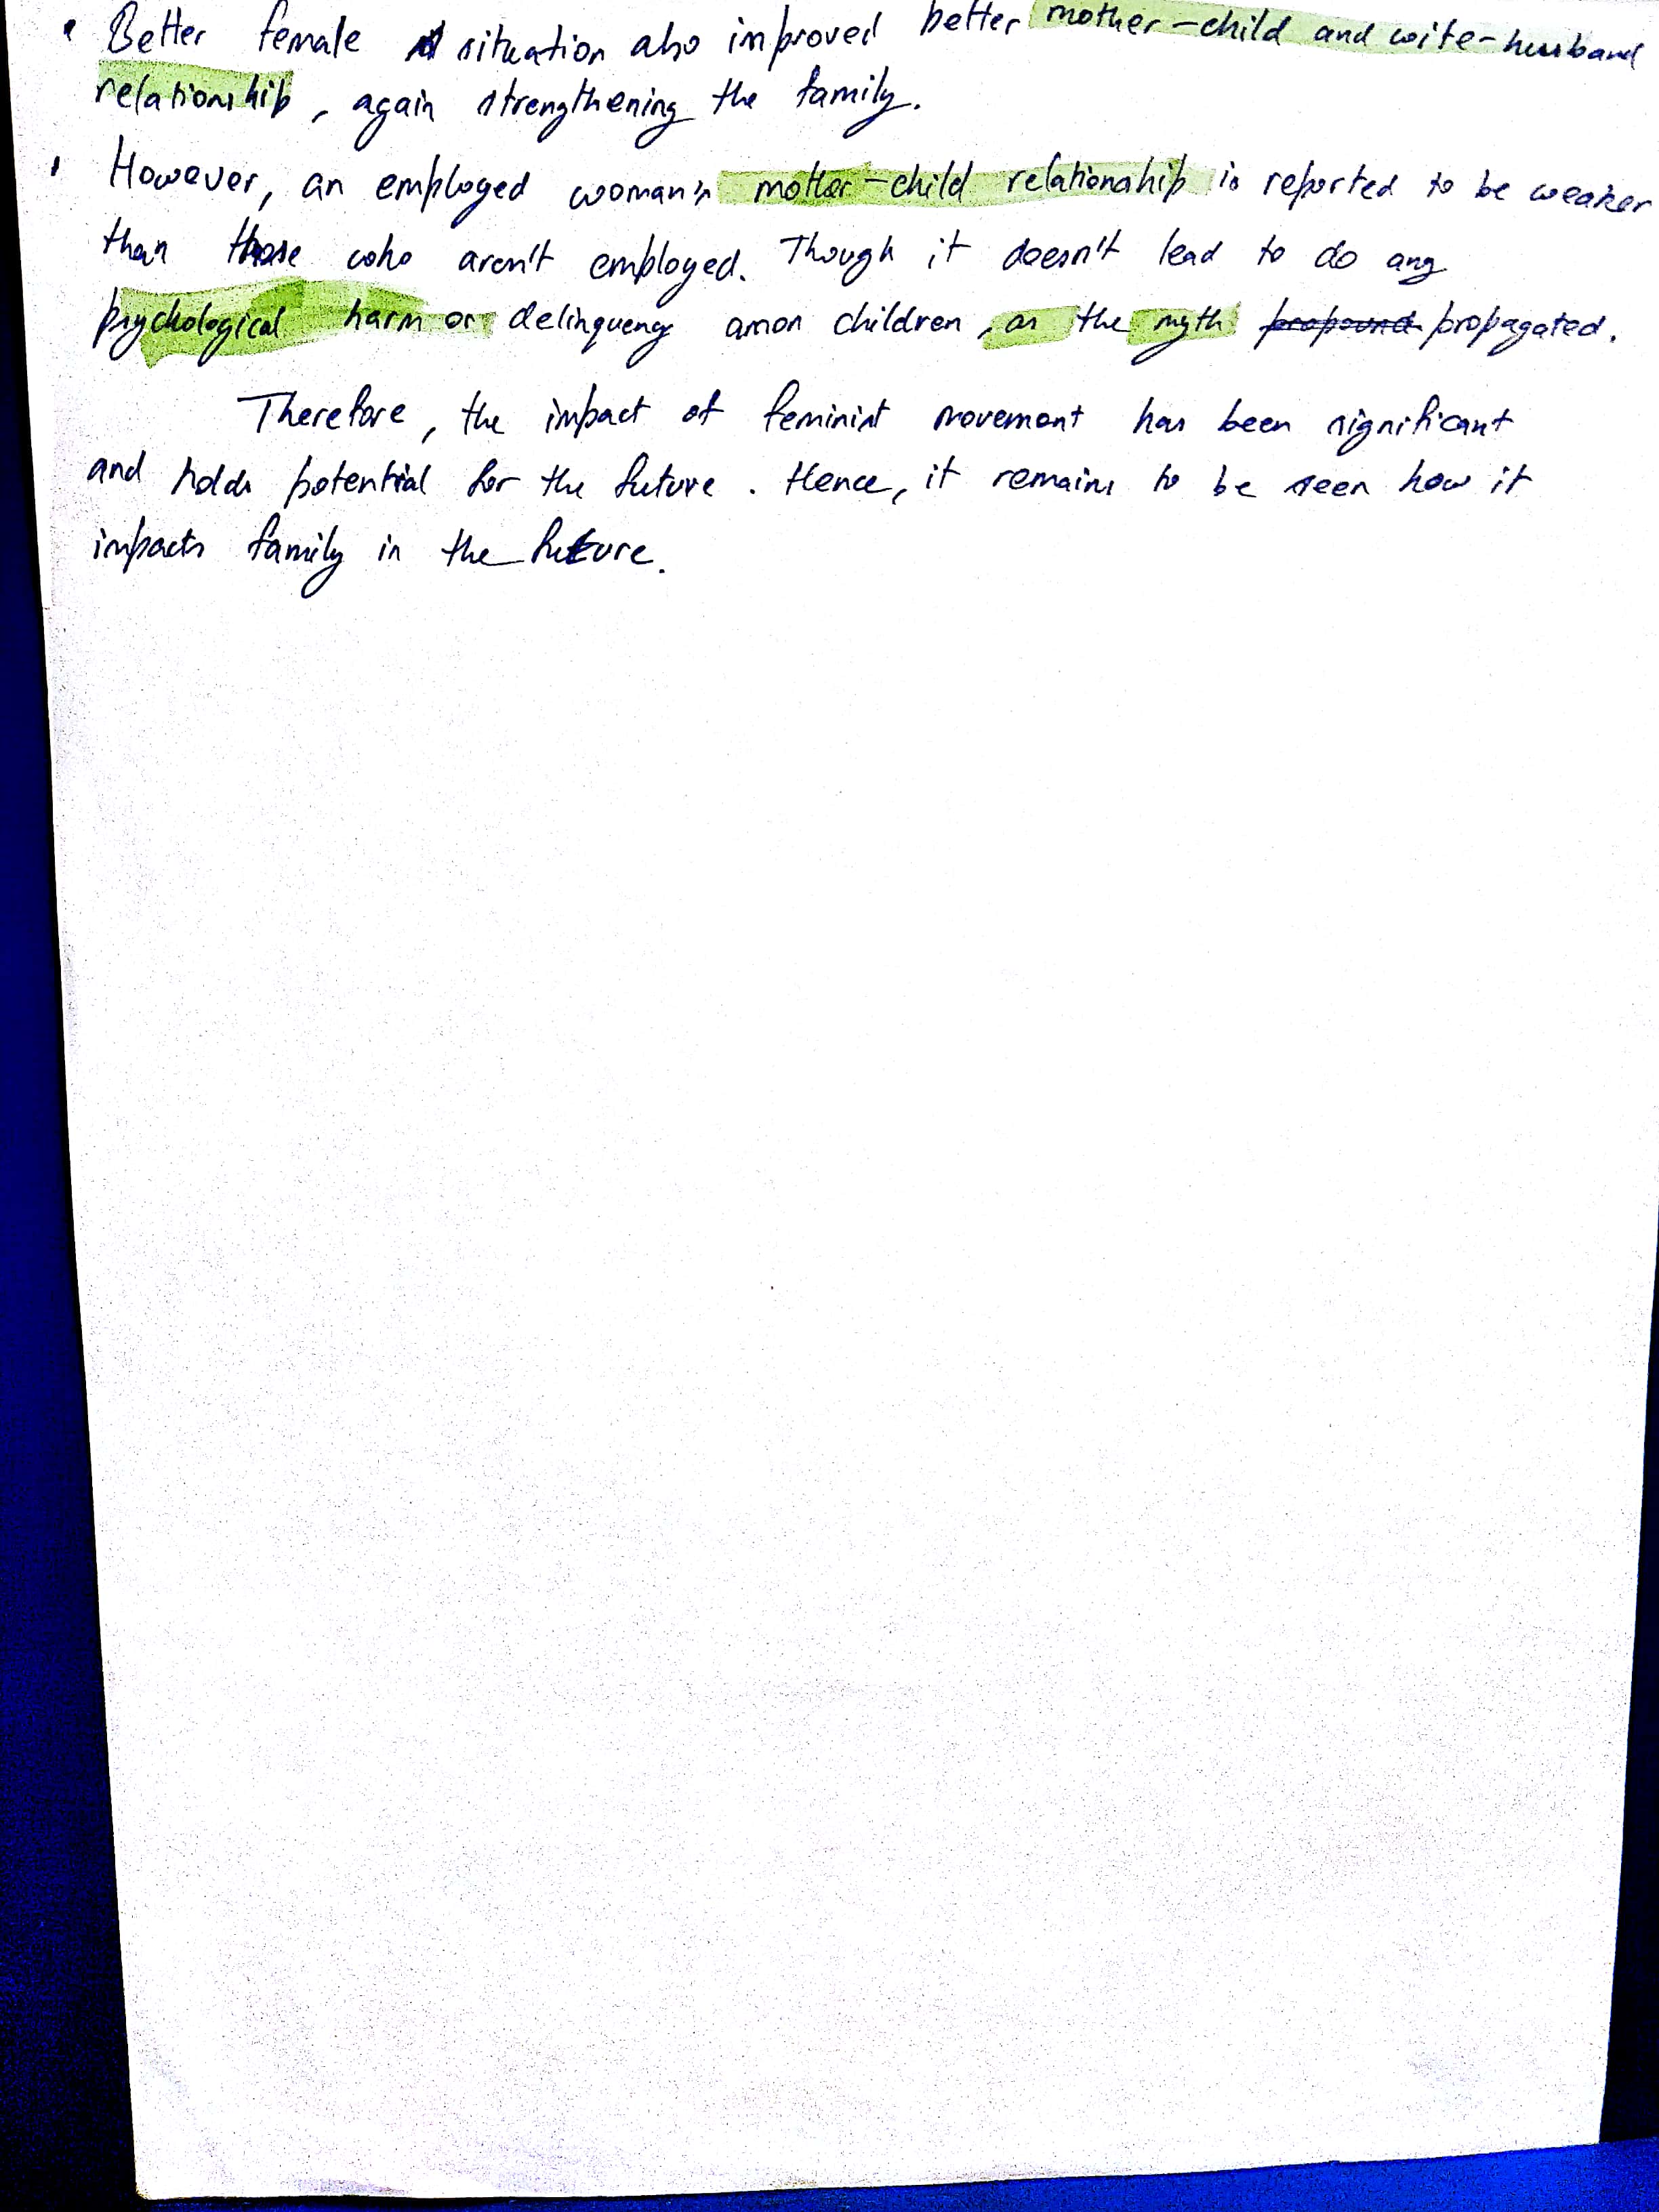 • Better female situation also improved better mother-child and wife-husband
relationship, again strengthening the family.
• However, an employed woman's mother-child relationship is reported to be weaker
than those who aren't employed. Though it doesn't lead to do any
psychological harm or delinquency amon children, as the myth propound propagated.
Therefore, the impact of feminist movement has been significant
and holds potential for the future. Hence, it remains to be seen how it
impacts family in the future.